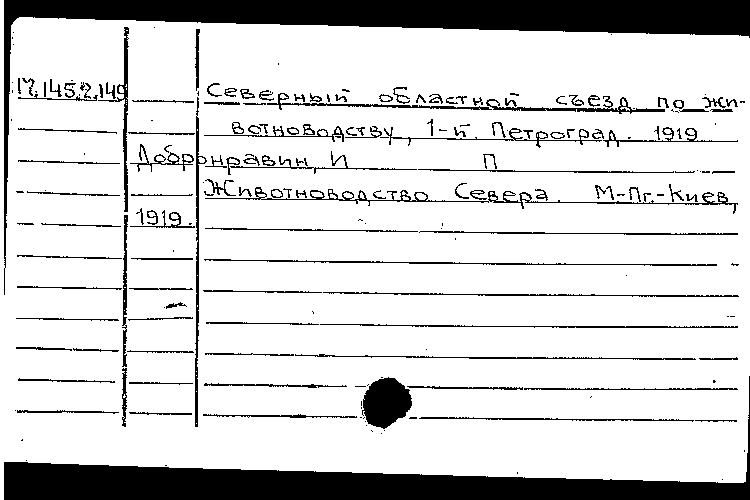 17.145.2.149 Северный областной съезд по жи-
вотноводству, 1-й. Петроград. 1919
Добронравин, И П
Животноводство Севера. М-Пг.-Киев,
1919.